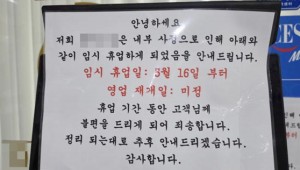 안녕하세요
저희 은 내부 사정으로 인해 아래와
같이 임시 휴업하게 되었음을 안내드립니다.
임시 휴업일: 3월 16일 부터
영업 재개일: 미정
휴업 기간 동안 고객님께
불편을 드리게 되어 죄송합니다.
정리 되는대로 추후 안내드리겠습니다.
감사합니다.